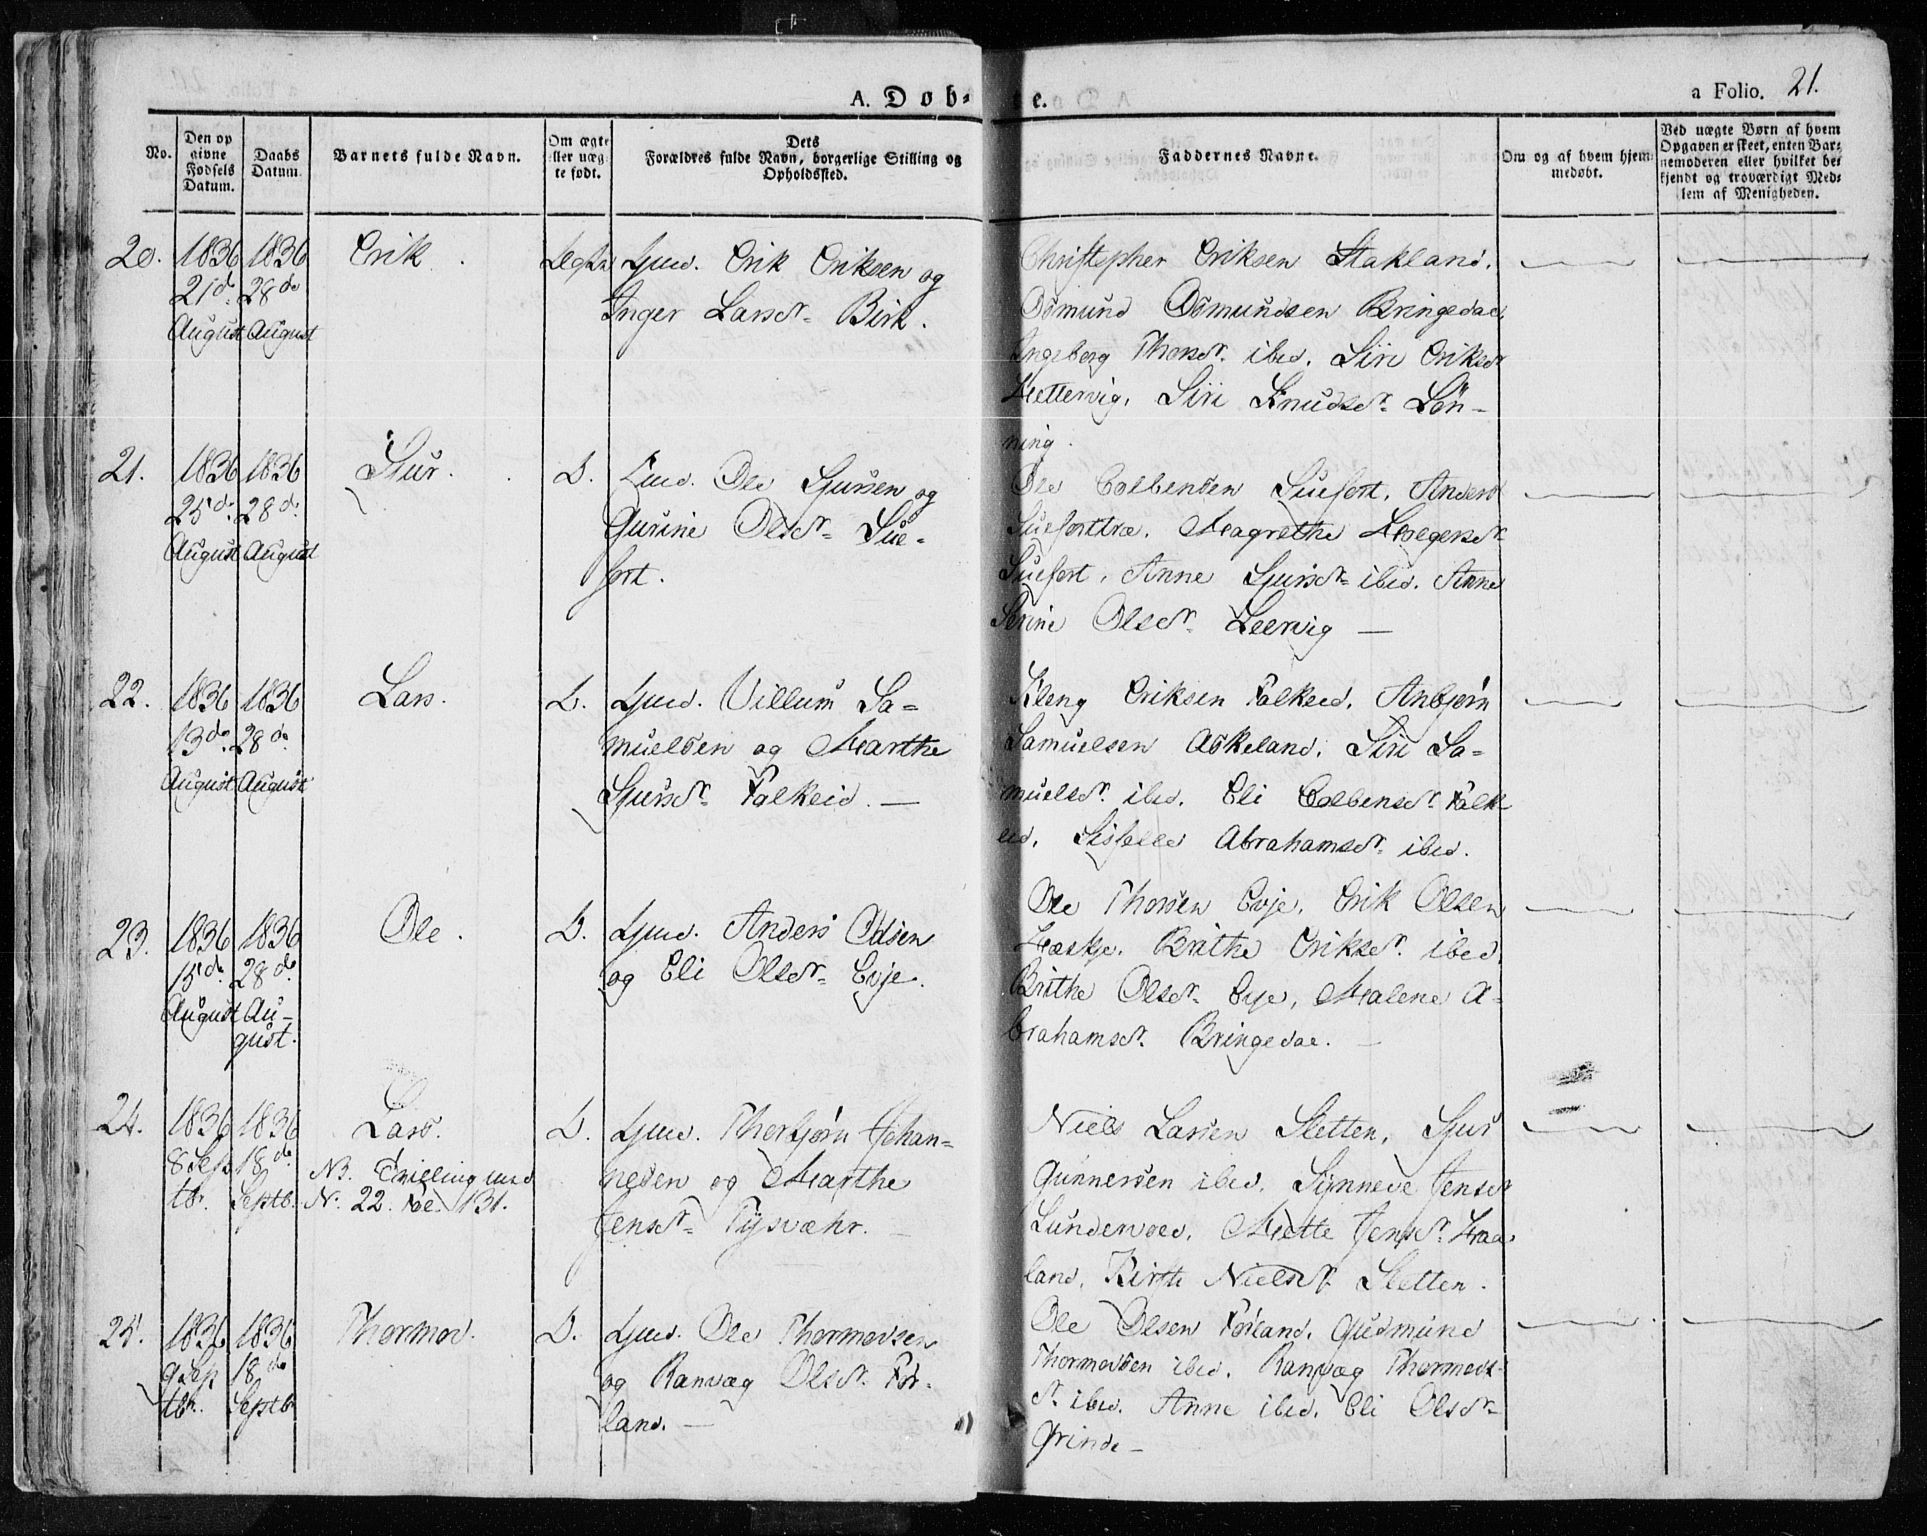 A. Døb- te.
a Folio. 21.
No.
Den op
givne
Fødsels
Datum.
Daabs
Datum.
Barnets fulde Navn.
Om ægte
eller uæg-
te født.
Dets
Forældres fulde Navn, borgerlige Stilling og
Opholdssted.
Faddernes Navne.
Om og af hvem hjem-
medøbt.
Ved uægte Børn af hvem
Opgaven er skeet, enten Bar-
nemoderen eller hvilket be-
kjendt og troværdigt Med-
lem af Menigheden.
20.
1836
21de
August
1836
28de
August
Erik.
Ægte
Gmd. Erik Eriksen og
Inger Larsdr. Birk.
Christopher Eriksen Stakland.
Osmund Osmundsen Bringedal
Ingeborg Thorsdr. ibid. Siri Eriksdr
Hettervig, Siri Knudsdr. Løn-
ning.
21.
1836
25de
August
1836
28de
August
Siur.
D.
Gmd. Ole Sjursen og
Gurine Olsdr. Sue-
fort.
Ole Colbensen Suefort, Anders
Sueforttræ. Magrethe Holgersdr.
Suefort, Anne Sjursdr. ibid. Anne
Serine Olsdr. Leervig —
22.
1836
13de
August
1836
28de
August
Lars.
D.
Gmd. Villum Sa-
muelsen og Marthe
Sjursdr. Falkeid. —
Kleng Eriksen Falkeid. Anbjørn
Samuelsen Askeland. Siri Sa-
muelsdr. ibid. Eli Colbensdr. Falk-
eid. Sisselle Abrahamsdr. ibid.
23.
1836
15de
August
1836
28de
Au-
gust.
Ole.
D.
Gmd. Anders Odsen
og Eli Olsdr. Evje.
Ole Thorsen Evje. Erik Olsen
Haskje. Brithe Eriksdr. ibid.
Brithe Olsdr. Evje, Malene A-
brahamsdr. Bringedal. —
24.
1836
8 Sep
tb.
1836
18de
Septb.
Lars.
NB. Tvilling med
N. 22. Fol. 131.
D.
Gmd. Thorbjørn Johan-
nesen og Marthe
Jensdr. Tysvæhr. —
Niels Larsen Sletten, Sjur
Gunnersen ibid. Synneve Jensdr
Lundervold, Mette Jensdr. Haa-
land, Kirsti Nielsdr. Sletten.
25.
1836
9 Sep
tbr.
1836
18de
Septb
Thormod.
D.
Gmd. Ole Thormodsen
og Ranvæg Olsdr. Før-
land. —
Ole Olsen Førland. Gudmund
Thormodsen ibid. Ranvæg Thormods-
dr. ibid. Anne ibid. Eli Olsdr.
Grinde —